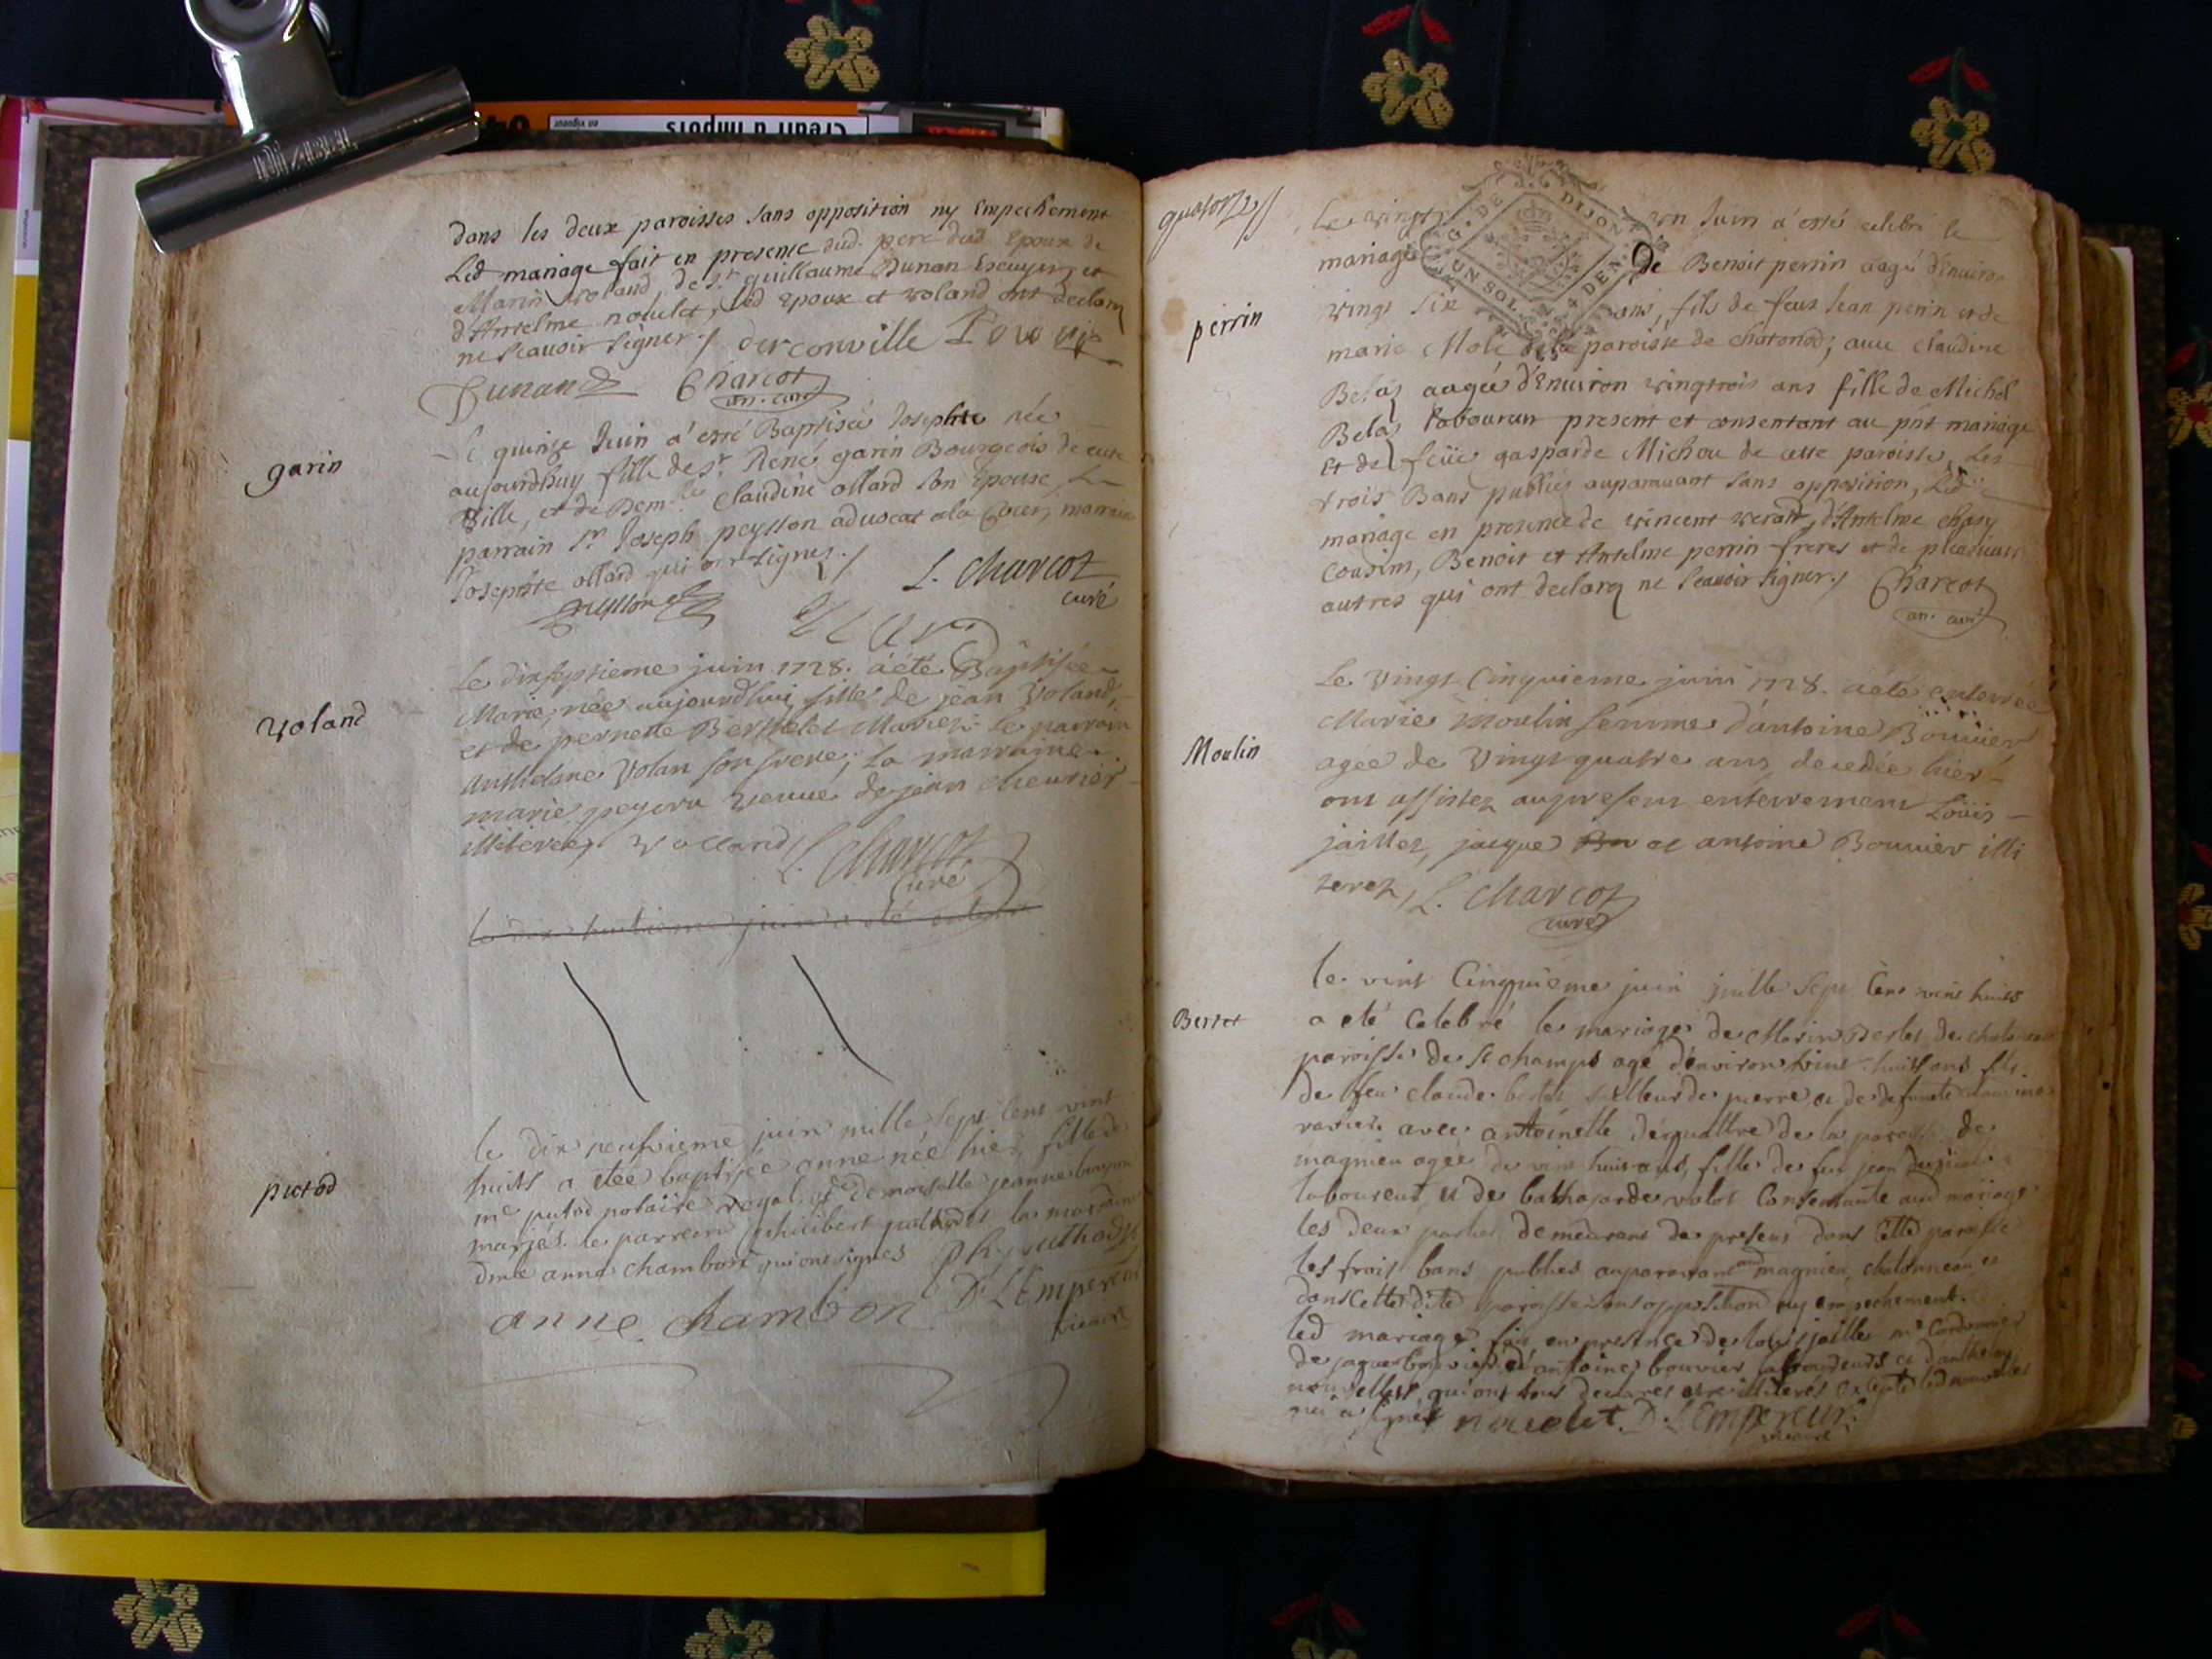 dans les deux paroisses sans opposition ny Empechement
Led mariage fait en presence dud. pere dud Epoux de
Marin voland, de Sr guillaume Dunan Escuyer, et
d'Antelme nolulet, led Epoux et voland ont declaré
ne scauoir signer ./ derconville
Dunand Charcot
an. curé
garin
Le quinze Juin a'esté Baptisée Josephte née
aujourdhuy fille de Sr René garin Bourgeois de cette
Ville, et de Demlle Claudine ollard son Epouse
parrain Sr Joseph peysson aduocat ala Cour, marraine
Josephte ollard qui ont signez ./ L. Charcot
peysson curé
voland
Le dixseptieme juin 1728. a été Baptisée
Marie, née aujourdhui fille de jean Voland,
et de pernette Berthelet Mariez. Le parrain
Anthelme Volan son frere; La marraine
marie veuue de jean cheurier
illiterez Volland L. Charcot
Curé
le dix huitieme juin a eté
putod
le dix neufvieme juin mille sept Cent vint
huits a etee baptisée anne née hier, fille de
me putod notaire Royal, et de demoiselle jeanne
mariés. le parrein philibert puthod et la marraine
dmlle anne chambon qui ont signés ph. puthod
anne chambon D. L'Empereur
vicaire
quatorze
G. DE DIJON
UN SOL 4 DEN.
Le vingt un Juin a'esté celebré le
mariage de Benoit perrin aagé d'Enuiron
vingt six ans, fils de feus Jean perrin et de
perrin
marie Mole de la paroisse de chatonod; auec claudine
Belas aagée d'Enuiron vingtrois ans fille de Michel
Belas laboureur present et consentant au pnt mariage
Et de feüe gasparde Michou de cette paroisse, Les
trois Bans publiés auparauant sans opposition, Led
mariage en presence de vincent verand, d'Antelme chary
cousins, Benoit et Antelme perrin freres et de plusieurs
autres qui ont declaré ne scauoir signer ./ Charcot
an. curé
Moulin
Le Vingt Cinquieme juin 1728. a été enterrée
Marie Moulin femme d'antoine Bouuier
agée de Vingt quatre ans decedée hier
ont assistez au present enterrement Loüis
jaillet, jacque et antoine Bouuier illi
terez, L. Charcot
curé
Bertet
le vint Cinquieme juin mille sept Cens vint huits
a eté Celebré le mariage de Marin Bertet de
paroisse de St champs agé d'environ vint huit ans fils
de feu claude bertet tailleur de pierre et de defuncte
avec antoinette de la paroisse de
magnieu agée de vint huit ans, fille de feu jean
laboureur et de Consentante aud mariage
les deux parties demeurant de present dans cette paroisse
les trois bans publiés auparavant aud magnieu, et
dans cette dite paroisse sans opposition ny empechement.
led mariage fait en presence de louis jaillet me Cordonnier
de jaque bouvier et antoine bouvier et d'anthelme
qui ont tous declarés etre illiterés excepté led
qui a signé nouelet. D. L'Empereur
vicaire